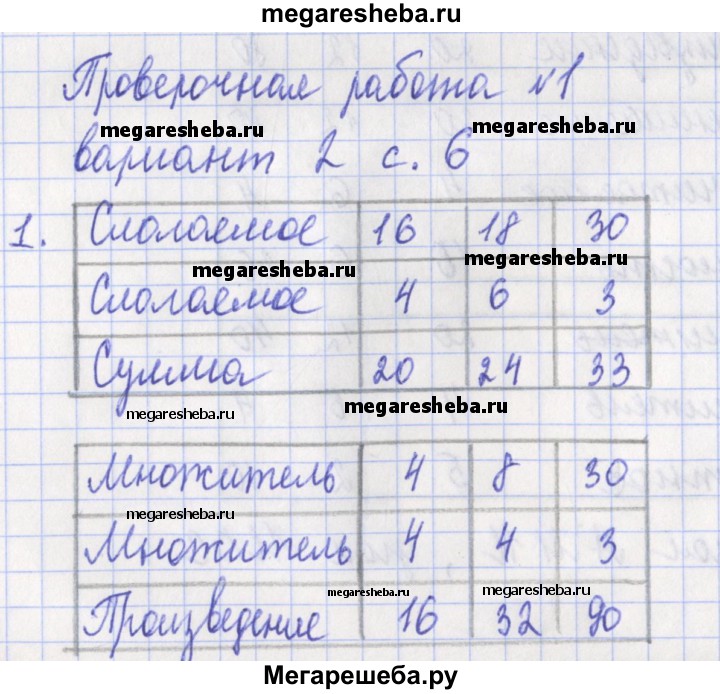 megaresheba.ru
Проверочная работа №1
megaresheba.ru megaresheba.ru
вариант 2 с. 6
1. Слогаемое 16 18 30
megaresheba.ru megaresheba.ru
Слогаемое 4 6 3
Сумма 20 24 33
megaresheba.ru megaresheba.ru
Множитель 4 8 30
megaresheba.ru
Множитель 4 4 3
megaresheba.ru megaresheba.ru
Произведение 16 32 90
Мегарешеба.ру